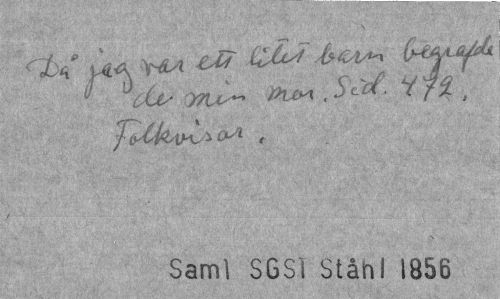 Då jag var ett litet barn begrafde
de min mor. Sid. 472.
Folkvisor.
Saml SGS1 Ståhl 1856